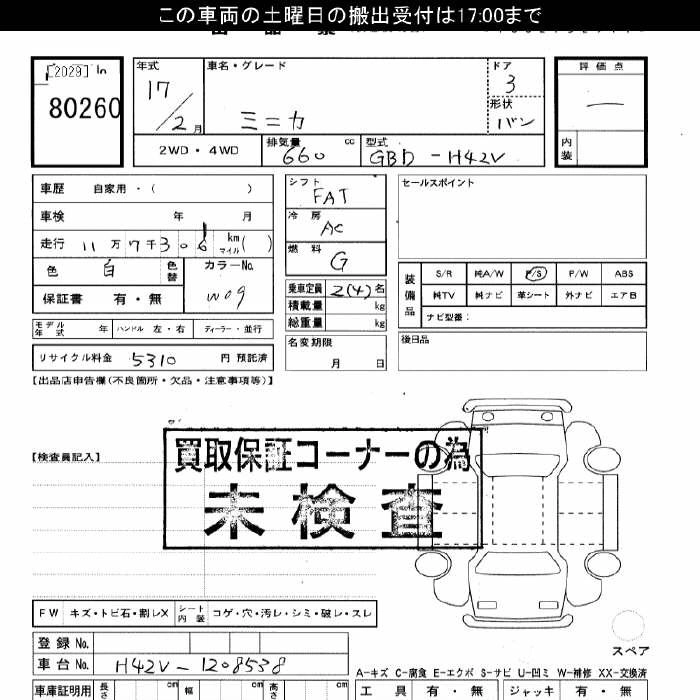 この車両の土曜日の搬出受付は17:00まで
[2029] In
80260
年式 17/2月
車名・グレード ミニカ
ドア 3
形状 バン
評価点 —
内装
2WD・4WD
排気量 660 cc
型式 GBD-H42V
車歴 自家用・( )
車検 年 月
走行 11万7千306 km マイル ( )
色 白 色替
カラーNo. W09
保証書 有・無
シフト FAT
冷房 AC
燃料 G
乗車定員 2(4)名
積載量 kg
総重量 kg
セールスポイント
装備品
S/R 純A/W P/S P/W ABS
純TV 純ナビ 革シート 外ナビ エアB
ナビ型番:
モデル年式 年 ハンドル 左・右 ディーラー・並行
リサイクル料金 5310 円 預託済
名変期限 月 日
後日品
【出品店申告欄(不良箇所・欠品・注意事項等)】
【検査員記入】
買取保証コーナーの為
未検査
FW キズ・トビ石・割レX
シート内装 コゲ・穴・汚レ・シミ・破レ・スレ
スペア
登録No.
車台No. H42V-1208538
A-キズ C-腐食 E-エクボ S-サビ U-凹ミ W-補修 XX-交換済
車庫証明用 長さ cm 幅 cm 高さ cm
工具 有・無 ジャッキ 有・無